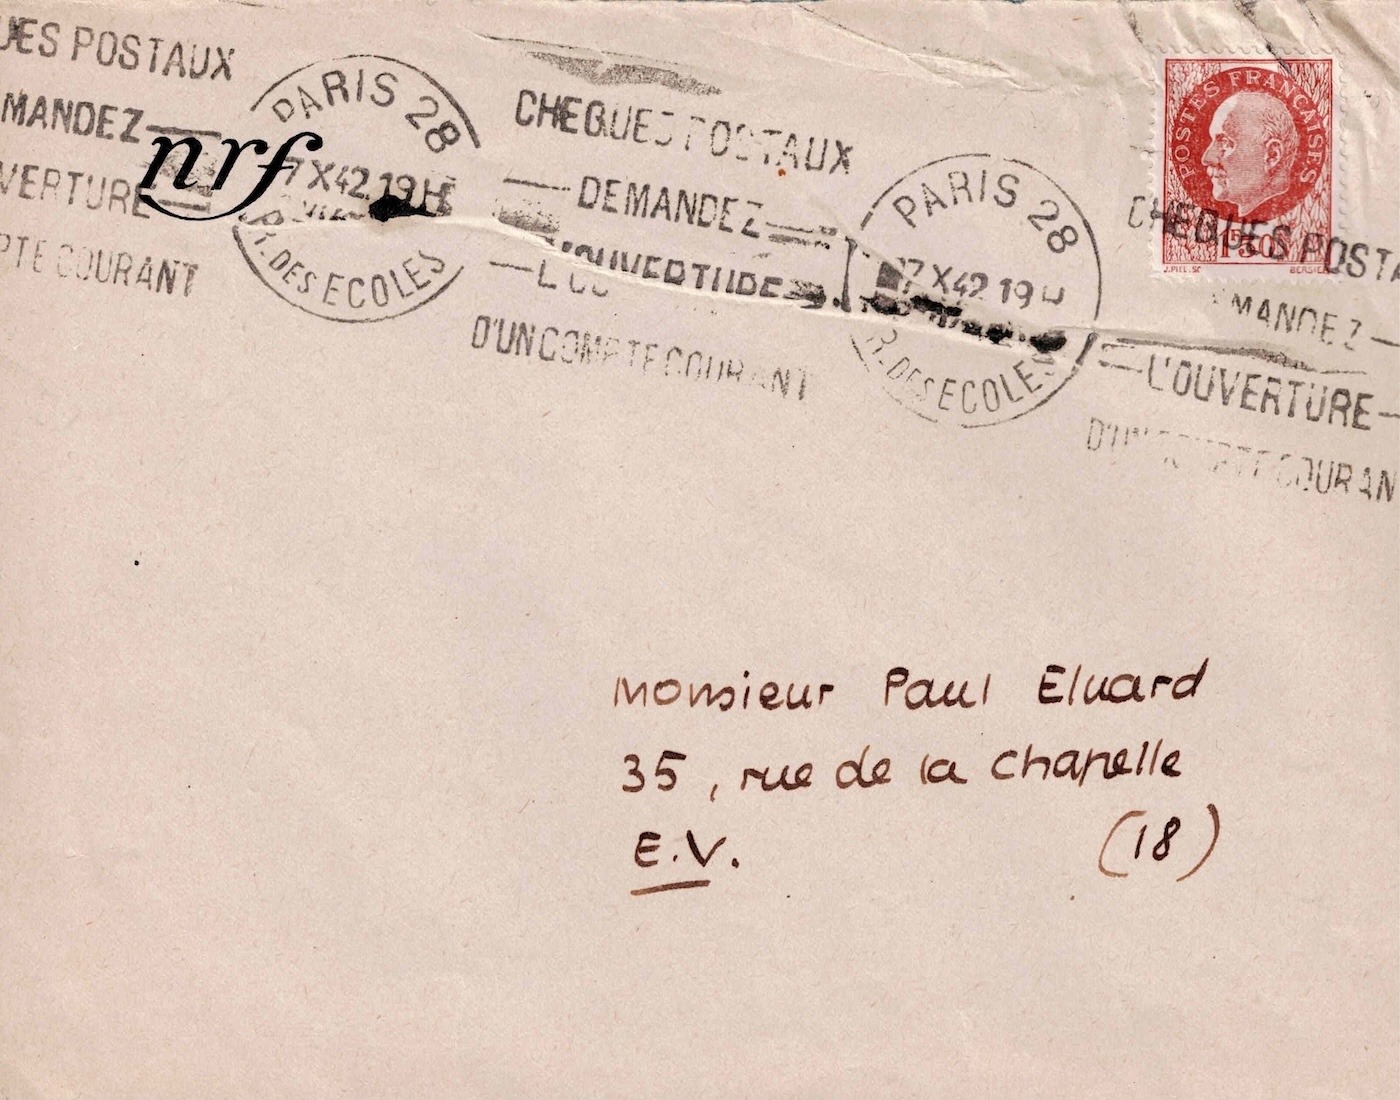 UES POSTAUX
MANDEZ
VERTURE
PTE COURANT
nrf
PARIS 28
7 X42 19H
R. DES ECOLES
CHEQUES POSTAUX
DEMANDEZ
L'OUVERTURE
D'UN COMPTE COURANT
PARIS 28
7 X42 19H
R. DES ECOLES
POSTES FRANÇAISES
1F50
J.PIEL.SC BERSIER
CHEQUES POSTA
MANDEZ
L'OUVERTURE
D'UN COMPTE COURAN
Monsieur Paul Eluard
35, rue de la Chapelle
E.V. (18)